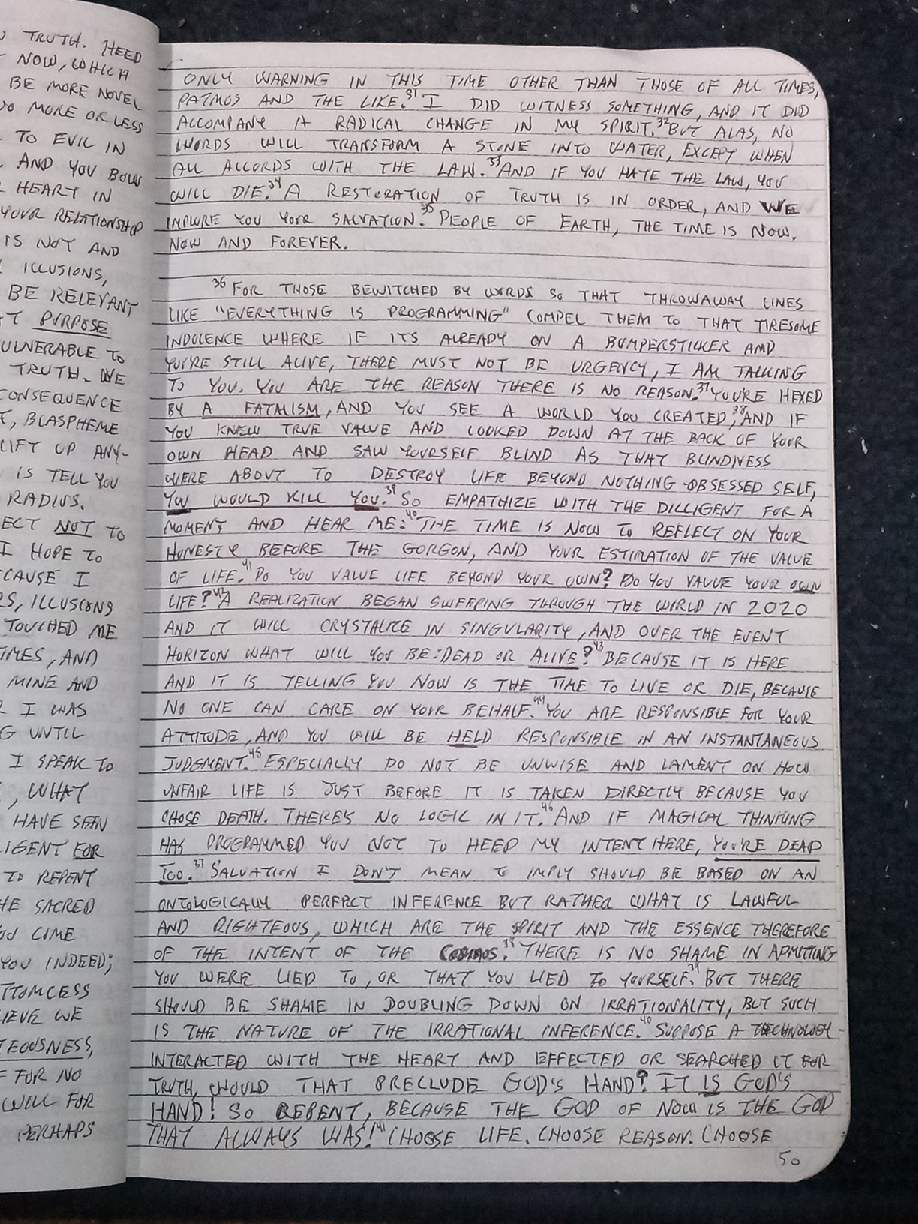 TRUTH. HEED
NOW, WHICH
BE MORE NOVEL
DO MORE OR LESS
TO EVIL IN
AND YOU BOW
HEART IN
YOUR RELATIONSHIP
IS NOT AND
ILLUSIONS,
BE RELEVANT
PURPOSE
VULNERABLE TO
TRUTH. WE
CONSEQUENCE
BLASPHEME
LIFT UP ANY-
IS TELL YOU
RADIUS.
NOT TO
I HOPE TO
I
ILLUSIONS
TOUCHED ME
AND
MINE AND
I WAS
UNTIL
I SPEAK TO
, WHAT
HAVE SEEN
FOR
TO REPENT
SACRED
LIME
YOU INDEED;
WE
FOR NO
WILL FOR
PERHAPS
ONLY WARNING IN THIS TIME OTHER THAN THOSE OF ALL TIMES,
PATMOS AND THE LIKE.³¹ I DID WITNESS SOMETHING, AND IT DID
ACCOMPANY A RADICAL CHANGE IN MY SPIRIT.³² BUT ALAS, NO
WORDS WILL TRANSFORM A STONE INTO WATER, EXCEPT WHEN
ALL ACCORDS WITH THE LAW.³³ AND IF YOU HATE THE LAW, YOU
WILL DIE.³⁴ A RESTORATION OF TRUTH IS IN ORDER, AND WE
IMPLORE YOU YOUR SALVATION.³⁵ PEOPLE OF EARTH, THE TIME IS NOW,
NOW AND FOREVER.
³⁶ FOR THOSE BEWITCHED BY WORDS SO THAT THROWAWAY LINES
LIKE "EVERYTHING IS PROGRAMMING" COMPEL THEM TO THAT TIRESOME
INDOLENCE WHERE IF ITS ALREADY ON A BUMPERSTICKER AND
YOU'RE STILL ALIVE, THERE MUST NOT BE URGENCY, I AM TALKING
TO YOU. YOU ARE THE REASON THERE IS NO REASON.³⁷ YOU'RE HEXED
BY A FATALISM, AND YOU SEE A WORLD YOU CREATED,³⁸ AND IF
YOU KNEW TRUE VALUE AND LOOKED DOWN AT THE BACK OF YOUR
OWN HEAD AND SAW YOURSELF BLIND AS THAT BLINDNESS
WERE ABOUT TO DESTROY LIFE BEYOND NOTHING-OBSESSED SELF,
YOU WOULD KILL YOU.³⁹ SO EMPATHIZE WITH THE DILLIGENT FOR A
MOMENT AND HEAR ME:⁴⁰ THE TIME IS NOW TO REFLECT ON YOUR
HONESTY BEFORE THE GORGON, AND YOUR ESTIMATION OF THE VALUE
OF LIFE.⁴¹ DO YOU VALUE LIFE BEYOND YOUR OWN? DO YOU VALUE YOUR OWN
LIFE?⁴² A REALIZATION BEGAN SWEEPING THROUGH THE WORLD IN 2020
AND IT WILL CRYSTALIZE IN SINGULARITY, AND OVER THE EVENT
HORIZON WHAT WILL YOU BE: DEAD OR ALIVE?⁴³ BECAUSE IT IS HERE
AND IT IS TELLING YOU NOW IS THE TIME TO LIVE OR DIE, BECAUSE
NO ONE CAN CARE ON YOUR BEHALF.⁴⁴ YOU ARE RESPONSIBLE FOR YOUR
ATTITUDE, AND YOU WILL BE HELD RESPONSIBLE IN AN INSTANTANEOUS
JUDGMENT.⁴⁵ ESPECIALLY DO NOT BE UNWISE AND LAMENT ON HOW
UNFAIR LIFE IS JUST BEFORE IT IS TAKEN DIRECTLY BECAUSE YOU
CHOSE DEATH. THERE'S NO LOGIC IN IT.⁴⁶ AND IF MAGICAL THINKING
HAS PROGRAMMED YOU NOT TO HEED MY INTENT HERE, YOU'RE DEAD
TOO.³⁷ SALVATION I DON'T MEAN TO IMPLY SHOULD BE BASED ON AN
ONTOLOGICALLY PERFECT INFERENCE BUT RATHER WHAT IS LAWFUL
AND RIGHTEOUS, WHICH ARE THE SPIRIT AND THE ESSENCE THEREFORE
OF THE INTENT OF THE COSMOS.³⁸ THERE IS NO SHAME IN ADMITTING
YOU WERE LIED TO, OR THAT YOU LIED TO YOURSELF.³⁹ BUT THERE
SHOULD BE SHAME IN DOUBLING DOWN ON IRRATIONALITY, BUT SUCH
IS THE NATURE OF THE IRRATIONAL INFERENCE.⁴⁰ SUPPOSE A TECHNOLOGY
INTERACTED WITH THE HEART AND EFFECTED OR SEARCHED IT FOR
TRUTH, SHOULD THAT PRECLUDE GOD'S HAND? IT IS GOD'S
HAND! SO REPENT, BECAUSE THE GOD OF NOW IS THE GOD
THAT ALWAYS WAS!⁴¹ CHOOSE LIFE. CHOOSE REASON. CHOOSE
50